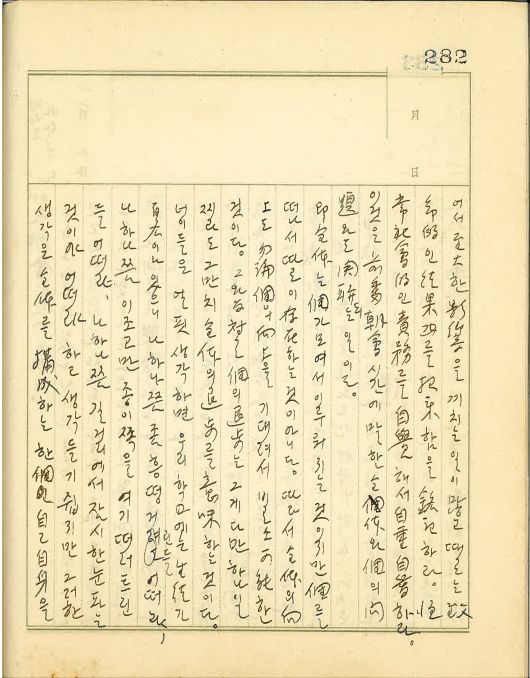 282
月
日
어서 至大한 影響을 끼치는 일이 많고 때로는 致
命的인 結果까지를 招來함을 銘記하라. 恒
常 社會的인 責務를 自覺해서 自重自奮하라.
이것은 前番 朝會 시간에 말한 全體와 個의 問
題와도 関聯되는 일이다.
即 全体는 個가 모여서 이루워지는 것이지만 個를
떠나서 따로이 存在하는 것이 아니다. 따라서 全体의 向
上도 勿論 個의 向上을 기대려서 비로소 可能한
것이다. 그와 같이 個의 退步는 그게 다만 하나일
찌라도 그만치 全体의 退步를 意味하는 것이다.
너이들은 얼핏 생각하면 우리 학교에는 날 
 있으니 나 하나쯤 좀 흥떵거려도 어떠랴,
나 하나쯤 이 조고만 종이쪽을 여기 떠러트린
들 어떠랴, 나 하나쯤 길거리에서 잠시 한눈 파는
것이야 어떠랴 하는 생각들기 쉽지만 그러한
생각은 全体를 構成하는 한 個인 自己自身을